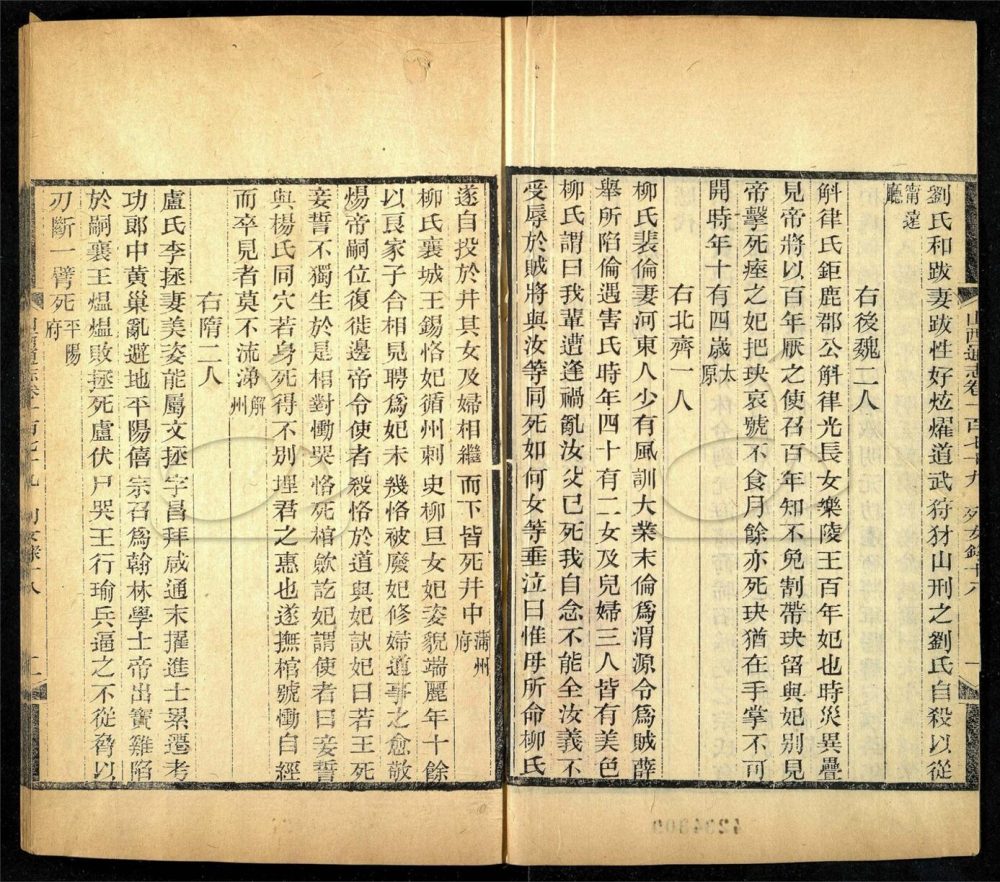 山西通志卷一百七十九 列女錄十八
劉氏和跋妻跋性好炫燿道武狩豺山刑之劉氏自殺以從
甯遠
廳
右後魏二人
斛律氏鉅鹿郡公斛律光長女樂陵王百年妃也時災異疊
見帝將以百年厭之使召百年知不免割帶玦留與妃別見
帝擊死瘞之妃把玦哀號不食月餘亦死玦猶在手掌不可
開時年十有四歲太
原
右北齊一人
柳氏裴倫妻河東人少有風訓大業末倫爲渭源令爲賊薛
舉所陷倫遇害氏時年四十有二女及兒婦三人皆有美色
柳氏謂曰我輩遭逢禍亂汝父已死我自念不能全汝義不
受辱於賊將與汝等同死如何女等垂泣曰惟母所命柳氏
遂自投於井其女及婦相繼而下皆死井中蒲州
府
柳氏襄城王錫恪妃循州刺史柳旦女妃姿貌端麗年十餘
以良家子合相見聘爲妃未幾恪被廢妃修婦道事之愈敬
煬帝嗣位復徙邊帝令使者殺恪於道與妃訣妃曰若王死
妾誓不獨生於是相對慟哭恪死棺斂訖妃謂使者曰妾誓
與楊氏同穴若身死得不別埋君之惠也遂撫棺號慟自經
而卒見者莫不流涕解
州
右隋二人
盧氏李拯妻美姿能屬文拯字昌拜咸通末擢進士累遷考
功郎中黃巢亂避地平陽僖宗召爲翰林學士帝出寶雞陷
於嗣襄王熅熅敗拯死盧伏尸哭王行瑜兵逼之不從脅以
刃斷一臂死平陽
府